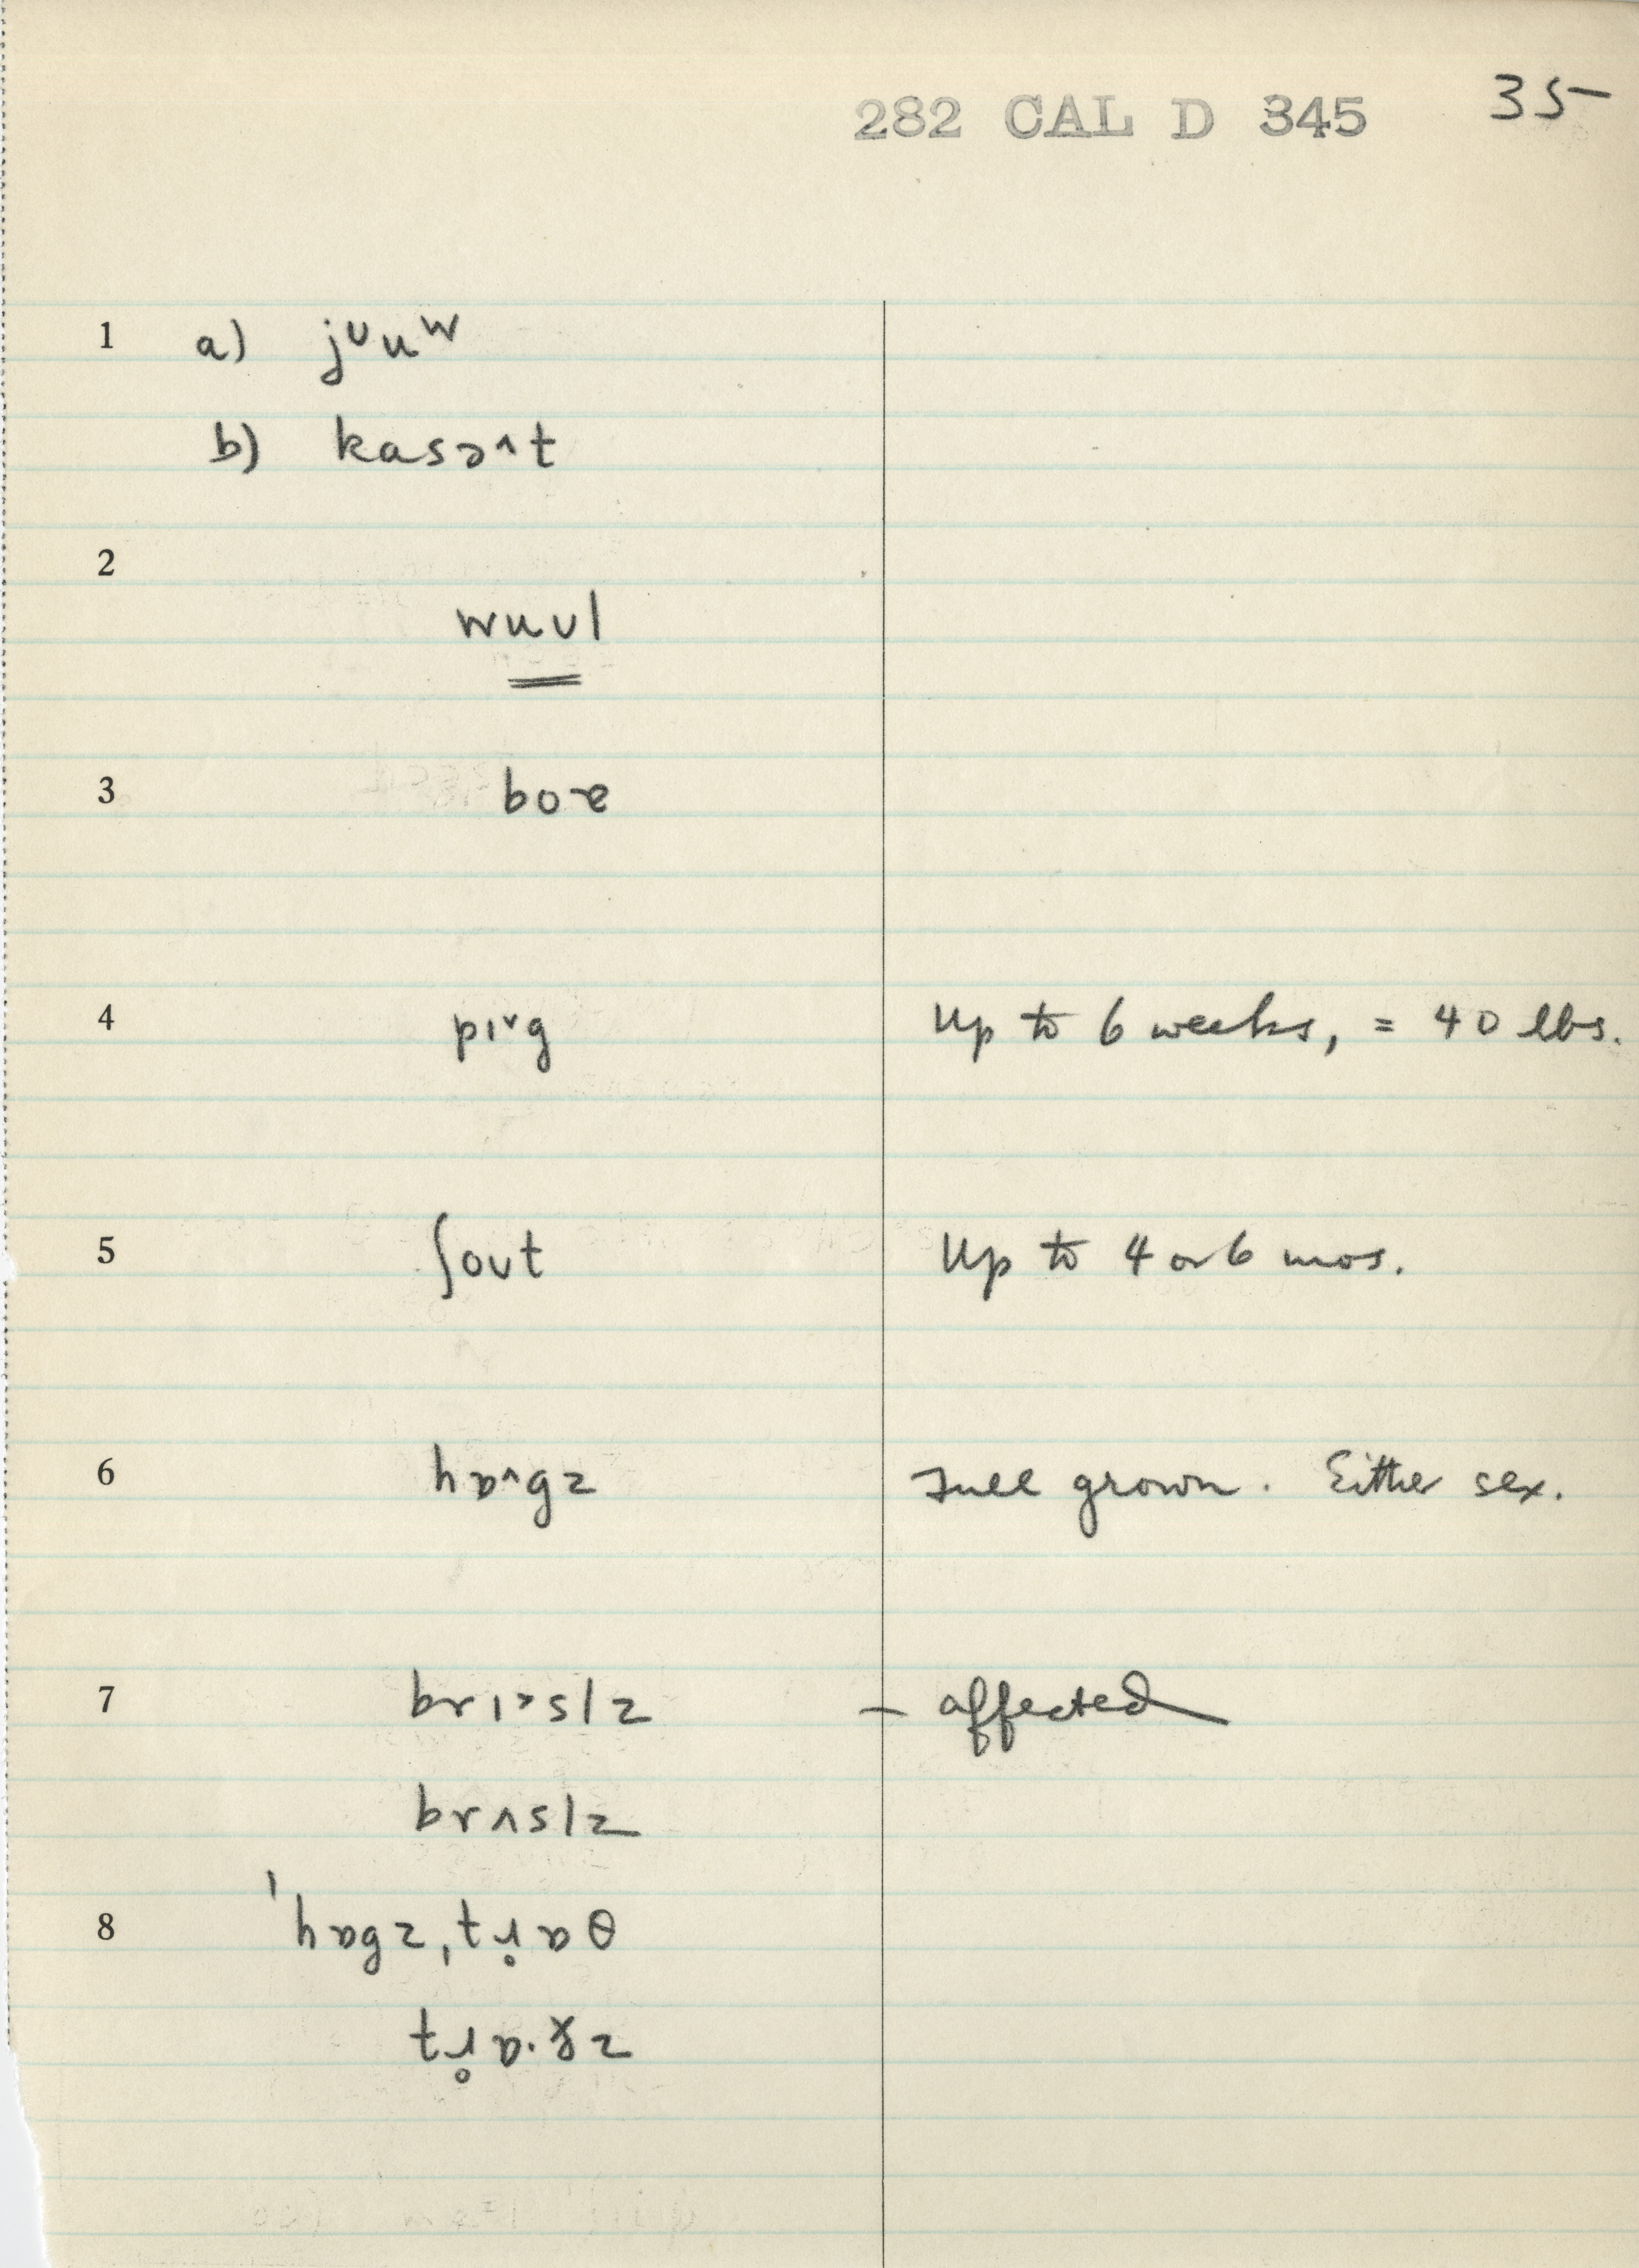 282 CAL D 345 35
1 a) jᶷuʷ
b) kasə^t
2
wuᴜl
3 boɚ
4 pɪ˅g Up to 6 weeks, = 40 lbs.
5 ʃoᴜt Up to 4 or 6 mos.
6 hɒ^gz Full grown. Either sex.
7 brɪ>slz – affected
brʌslz
8 ˈhɒgz,tɹ̥ɒθ
tɹ̥ɒ·ðz